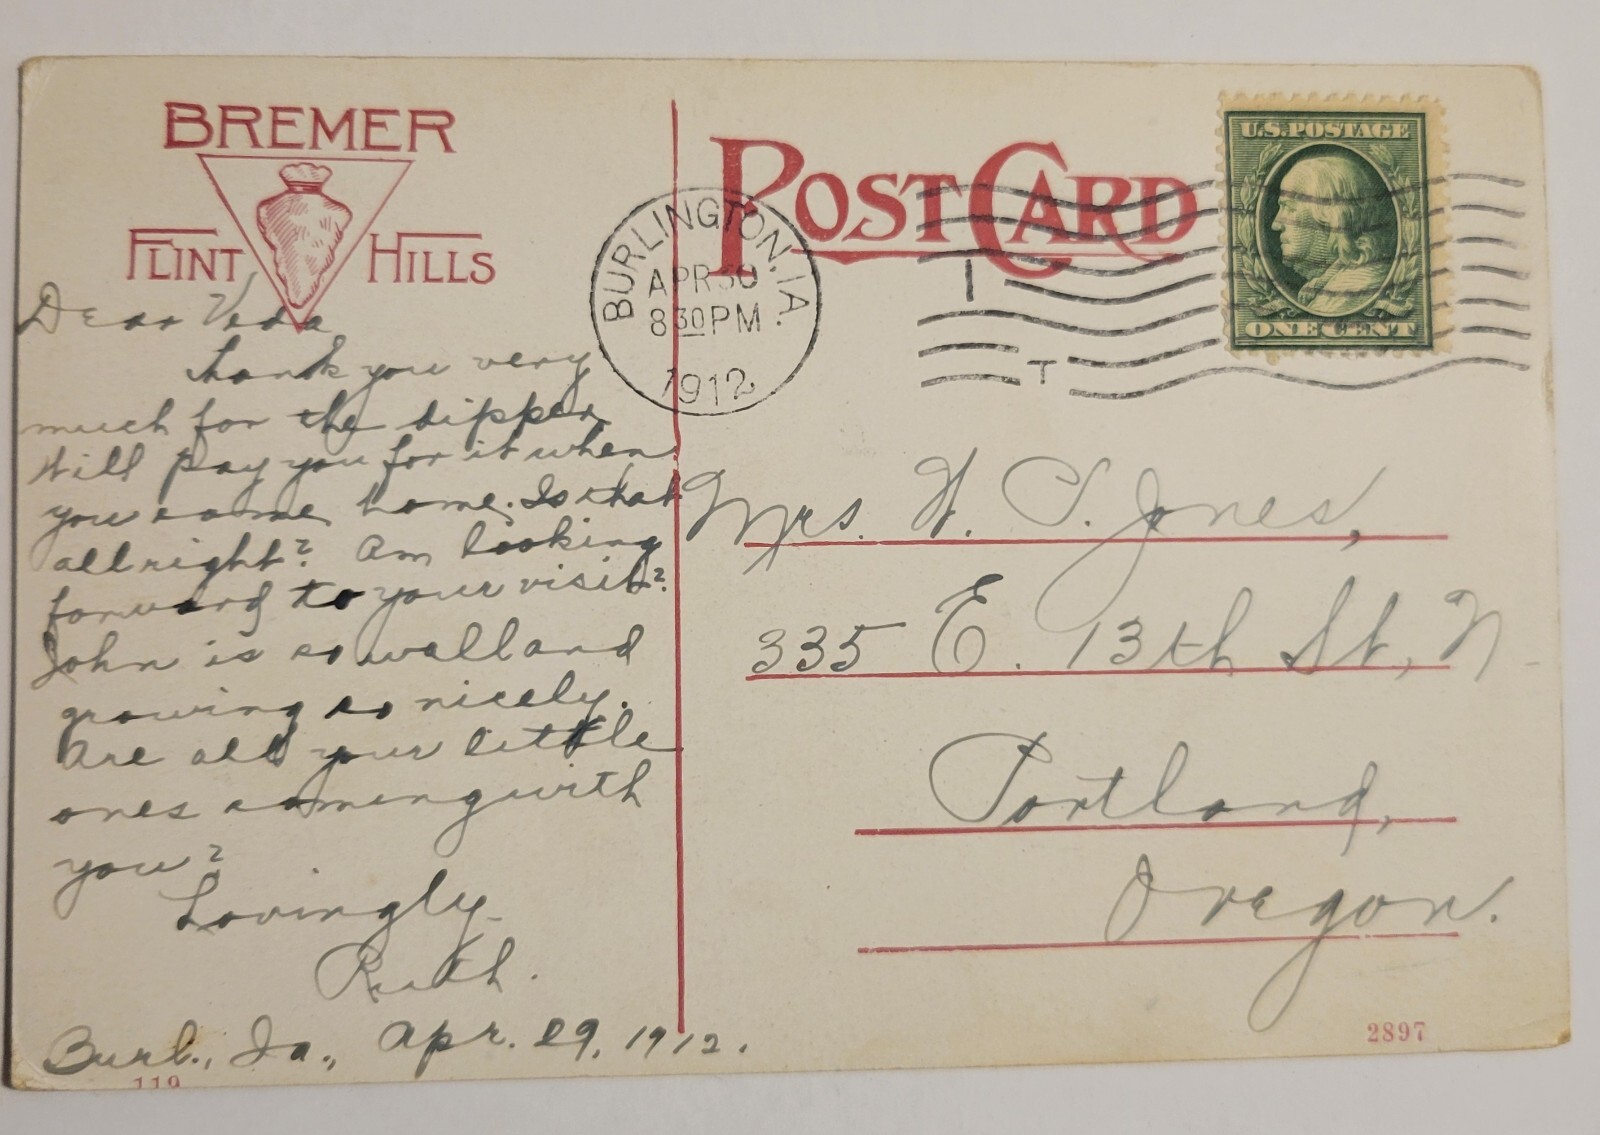 BREMER
FLINT HILLS
POST CARD
U.S. POSTAGE
ONE CENT
BURLINGTON, IA.
APR 30
8 30 PM
1912
Dear Veda
Thank you very
much for the dipper
Will pay you for it when
you come home. Is that
allright? Am looking
forward to your visit?
John is so well and
growing so nicely.
Are all your little
ones coming with
you?
Lovingly
Ruth.
Burl., Ia., Apr. 29, 1912.
119
Mrs. W. P. Jones,
335 E. 13th St, N
Portland,
Oregon.
2897